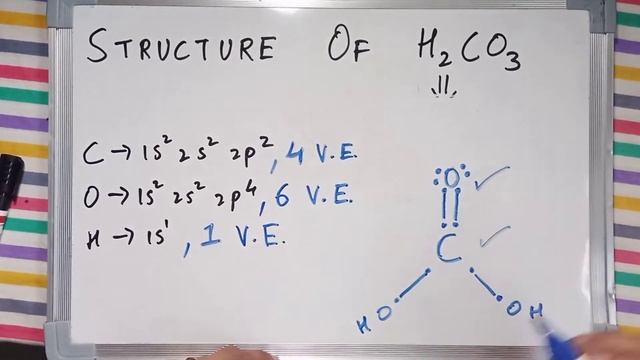 STRUCTURE OF H₂CO₃
C → 1s² 2s² 2p², 4 V.E.
O → 1s² 2s² 2p⁴, 6 V.E.
H → 1s¹, 1 V.E.
O
C
H O O H